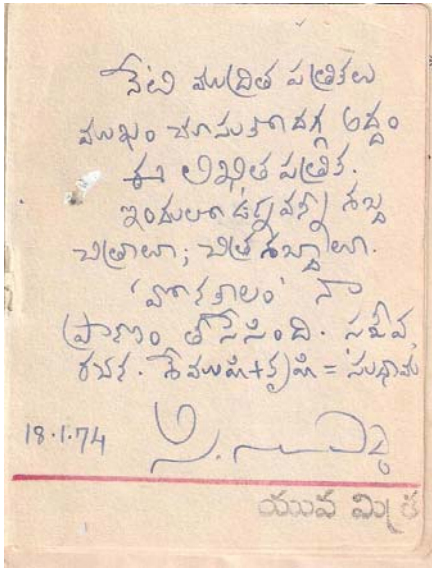 నేటి ముద్రిత పత్రికలు
ముఖం చూసుకొాదగ్గ అద్దం
ఈ లిఖిత పత్రిక.
ఇందులొా ఉన్నవన్నీ శబ్ద
చిత్రాలూ; చిత్రశబ్దాలూ.
'పొాగకాలం' నా
ప్రాణం తొాసేసింది. సజీవ
రచన.
18.1.74
యువ మిత్ర